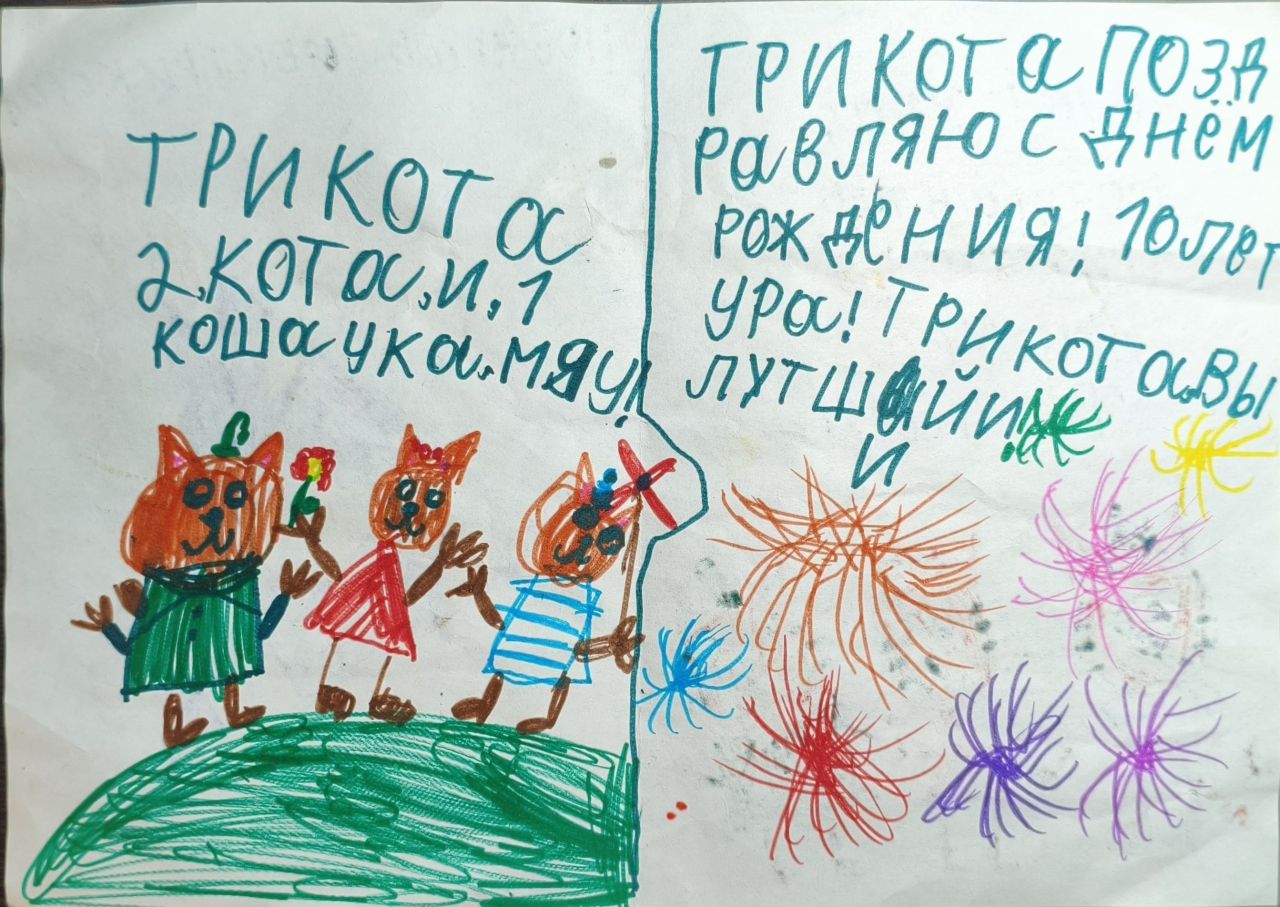 ТРИ КОТа
2,КОТа,И,1
КОШаЧКа.МЯУ!
ТРИ КОТа ПОЗД
РаВЛЯЮ С ДНЁМ
РОЖДЕНИЯ! 10 лет
УРа! ТРИ КОТа.ВЫ
ЛУТШаЙИ!
И